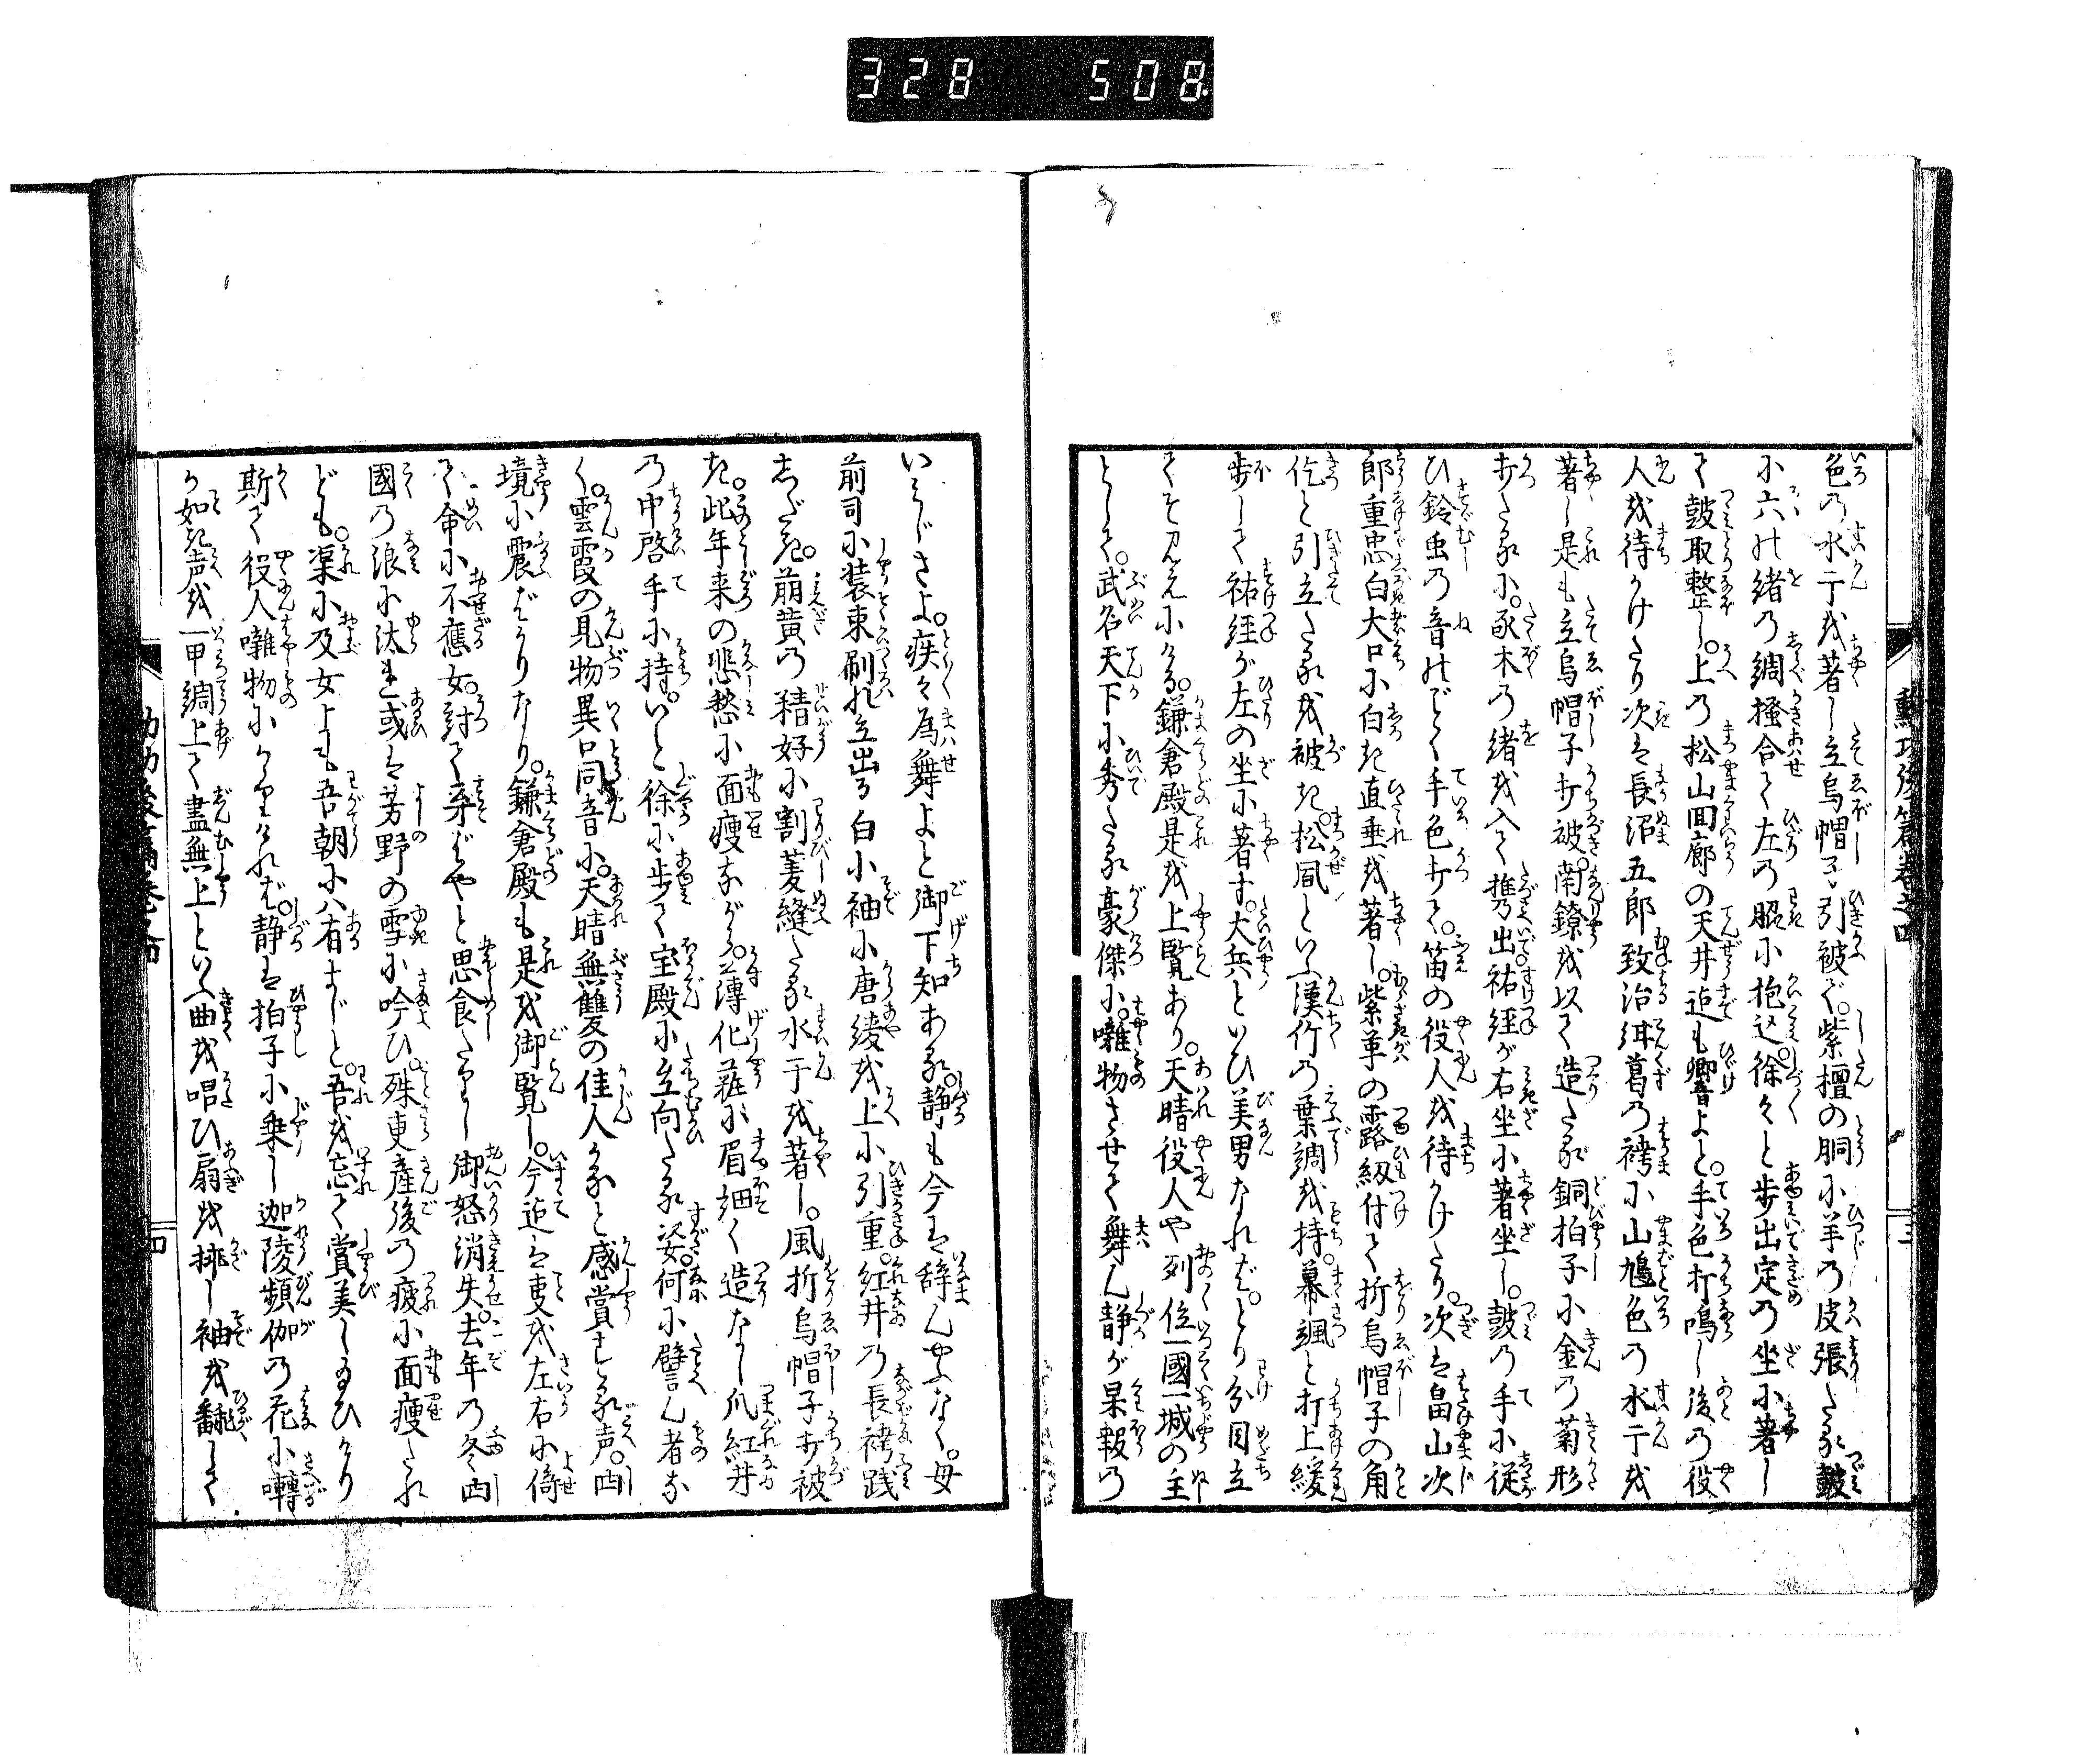 328 508
色の水干を著し立烏帽子引被ぎ。紫檀の胴に羊の皮張たる皷
に六の緒の調搔合て左の脇に抱込。徐々と歩出定の坐に著し
て皷取整し。上の松山面廊の天井迄も響よと。手色打鳴し後の役
人を待かけたり次は長沼五郎致治絓葛の袴に山鳩色の水干を
著し是も立烏帽子打被。南鐐を以て造たる銅拍子に金の菊形
打たるに。啄木の緒を入て携出祐経が右坐に著坐し。皷の手に従
ひ鈴虫の音のごとく手色打て。笛の役人を待かけたり。次は畠山次
郎重忠白大口に白き直垂を著し。紫革の露紐付て折烏帽子の角
仡と引立たるを被き。松風といふ漢竹の葉調を持。幕颯と打上緩
歩して祐経が左の坐に著す。大兵といひ美男なれば。とり分目立
てそ見えにける。鎌倉殿是を上覧あり。天晴役人や列位一國一城の主
として。武名天下に秀たる豪傑に。囃物させて舞ん静が果報の
いみじさよ。疾々為舞よと御下知ある。静も今は辞んやふなく。母
前司に装束刷れ立出る白小袖に唐綾を上に引重。紅井の長袴践
しだき。萠黄の精好に割菱縫たる水干を著し。風折烏帽子打被
き。此年来の悲愁に面痩ながら。薄化莊に眉細く造なし爪紅井
の中啓手に持。いと徐に歩て宝殿に立向たる姿。何に譬ん者な
く。雲霞の見物異口同音に。天晴無雙の佳人かなと感賞する声。四
境に震ばかりなり。鎌倉殿も是を御覧し。今迄は再を左右に倚
て命に不應女。討て弃ばやと思食たりし御怒消失。去年の冬四
國の浪に汰れ或は芳野の雪に吟ひ。殊更産後の疲に面痩たれ
ども。渠に及女よも吾朝には有まじと。吾を忘て賞美し給ひけり
斯て役人囃物にかゝりければ。静は拍子に乗し迦陵頻伽の花に囀
か如き声を一甲綢上て盡無上といふ曲を唱ひ扇を挑し袖を飜して